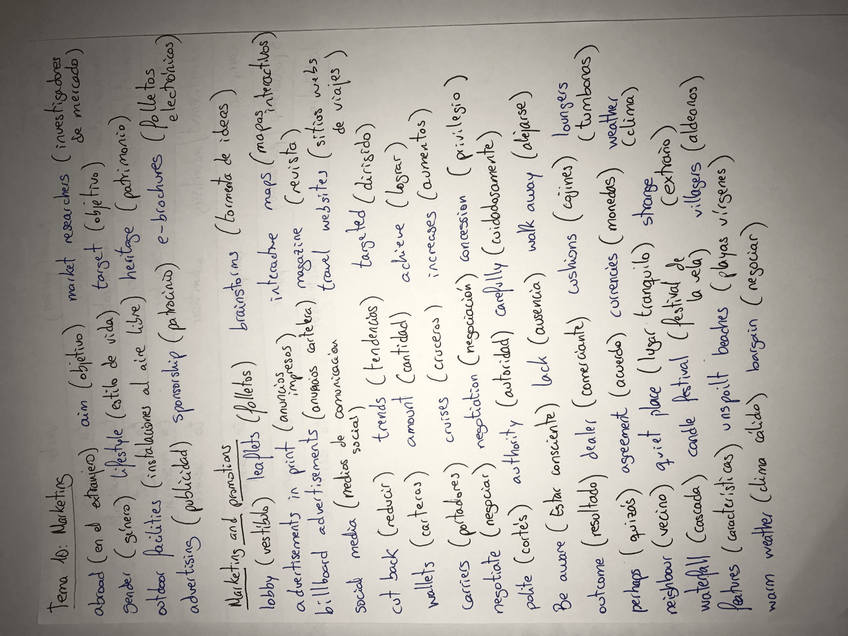 Tema 10: Marketing
abroad (en el extranjero) aim (objetivo) market researchers (investigadores de mercado)
gender (género) lifestyle (estilo de vida) target (objetivo)
outdoor facilities (instalaciones al aire libre) heritage (patrimonio)
advertising (publicidad) sponsorship (patrocinio) e-brochures (folletos electrónicos)
Marketing and promotions
lobby (vestíbulo) leaflets (folletos) brainstorms (tormenta de ideas)
advertisements in print (anuncios impresos) interactive maps (mapas interactivos)
billboard advertisements (anuncios cartelera) magazine (revista)
social media (medios de comunicación social) travel websites (sitios webs de viajes)
cut back (reducir) trends (tendencias) targeted (dirigido)
wallets (carteras) amount (cantidad) achieve (lograr)
carriers (portadores) cruises (cruceros) increases (aumentos)
negotiate (negociar) negotiation (negociación) concession (privilegio)
polite (cortés) authority (autoridad) carefully (cuidadosamente)
Be aware (Estar consciente) lack (ausencia) walk away (alejarse)
outcome (resultado) dealer (comerciante) cushions (cojines) loungers (tumbonas)
perhaps (quizás) agreement (acuerdo) currencies (monedas) weather (clima)
neighbour (vecino) quiet place (lugar tranquilo) strange (extraño)
waterfall (cascada) candle festival (festival de la vela) villagers (aldeanos)
features (características) unspoilt beaches (playas vírgenes)
warm weather (clima cálido) bargain (negociar)